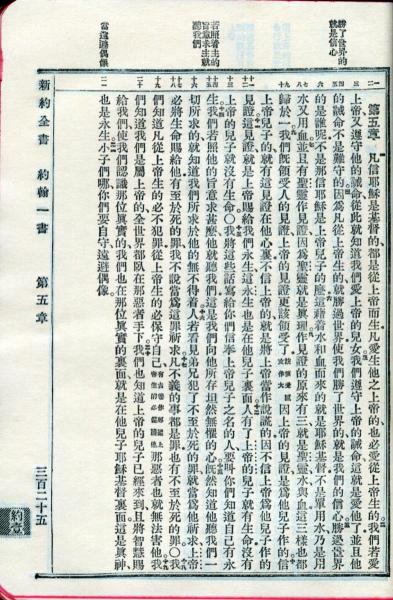 勝了世界的
就是信心
第五章 凡信耶穌是基督的、都是從上帝而生、凡愛生他之上帝的、也必愛從上帝生的、我們若愛
上帝、又遵守他的誡命、從此就知道我們愛上帝的兒女、我們遵守上帝的誡命、這就是愛他了、並且他
的誡命不是難守的、因爲凡從上帝生的、就勝過世界、使我們勝了世界的、就是我們的信心、勝過世界
的是誰呢、不是那信耶穌是上帝兒子的麽、這藉着水和血而來的、就是耶穌基督、不是單用水、乃是用
水又用血、並且有聖靈作見證、因爲聖靈就是眞理、作見證的原來有三、就是聖靈、水、與血、這三樣也都
歸於一、我們旣領受人的見證、上帝的見證更該領受了、該領受或作大因上帝的見證、是爲他兒子作的、信
上帝兒子的、就有這見證在他心裏、不信上帝的、就是將上帝當作說謊的、因不信上帝爲他兒子作的
見證、這見證、就是上帝賜給我們永生、這永生也是在他兒子裏面、人有了上帝的兒子、就有生命、沒有
若照着主的
旨意求主就
聽我們
上帝的兒子、就沒有生命○我將這些話寫給你們信奉上帝兒子之名的人、要叫你們知道自己有永
生、我們若照他的旨意求甚麽、他就聽我們、這是我們向他所存坦然無懼的心、旣然知道他聽我們一
切所求的、就知道我們所求於他的無不得着、人若看見弟兄犯了不至於死的罪、就當爲他祈求、上帝
必將生命賜給他、有至於死的罪、我不說當爲這罪祈求、凡不義的事都是罪、也有不至於死的罪○我
們知道凡從上帝生的、必不犯罪、從上帝生的、必保守自己、有古卷作那從上帝生的必保護他那惡者也就無法害他、我
們知道我們是屬上帝的、全世界都臥在那惡者手下、我們也知道上帝的兒子已經來到、且將智慧賜
給我們、使我們認識那位眞實的、我們也在那位眞實的裏面、就是在他兒子耶穌基督裏面、這是眞神、
當遠避偶像
也是永生、小子們哪、你們要自守、遠避偶像。
新約全書 約翰一書 第五章 三百二十五
約壹